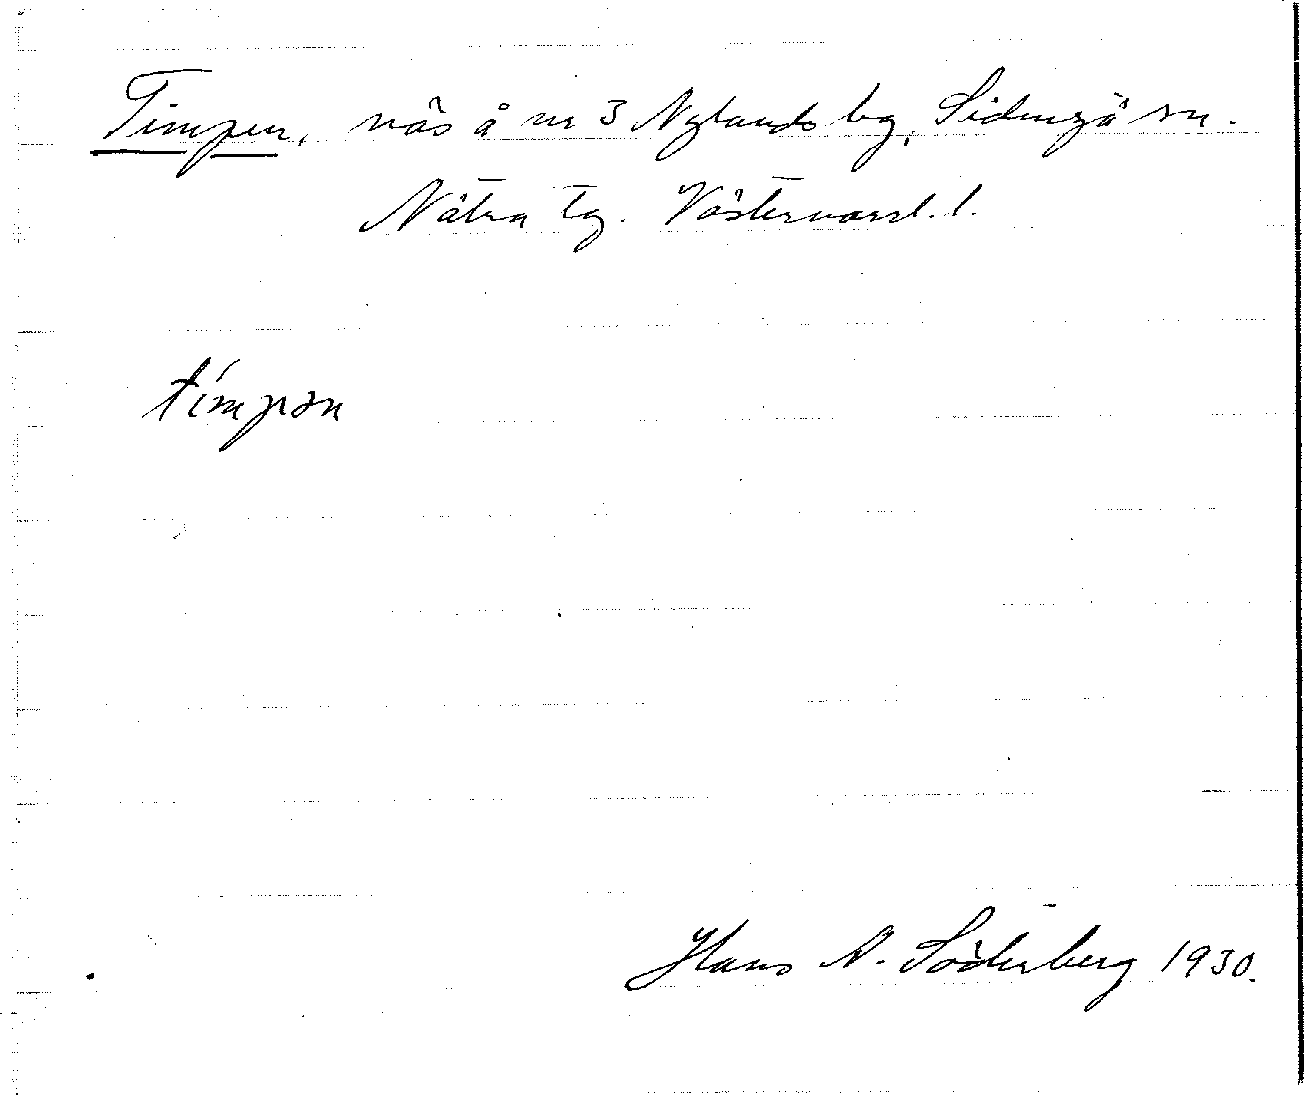 Timpen, näs å nr 3 Nylands by, Sidensjö sn.
Nätra tg. Västernorrl. l.
tímpən
Hans N. Söderberg 1930.